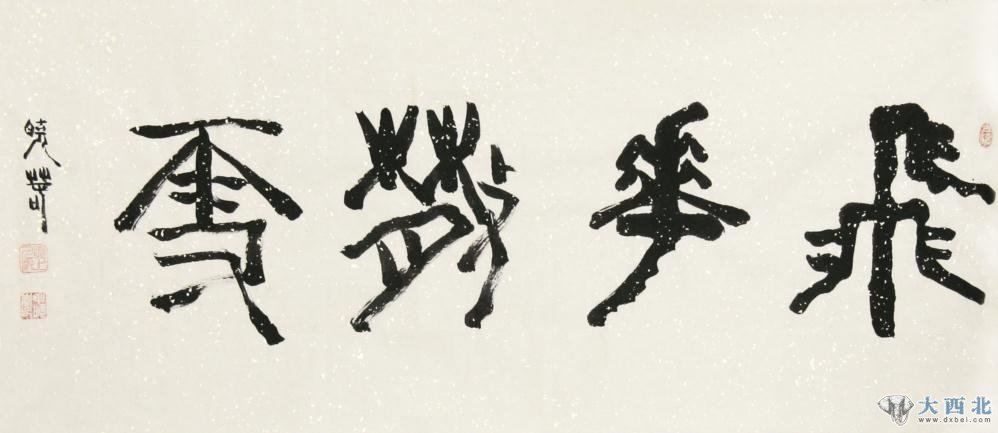 飛華散雪
大西北
www.dxbei.com